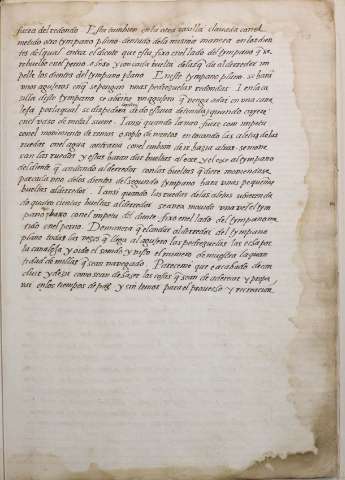 fuera del redondo. Esta tambien en la otra caxilla clauasa canel
metido otro tympano plano dentado dela misma manera en los dien
tes del qual entra el diente que esta fixo en el lado del tympano q se
rebuelue en el perno o exe y con cada buelta dela q da al derredor im
pelle los dientes del tympano plano. En este tympano plano se hará
unos agujeros en q se pongan unas pedrezuelas redondas. I en la ca
xilla deste tympano se abrirá un agujero q venga a dar en una cana
leja por la qual la piedra q estuuo detenida queriendo caerá
en el vaso de metal suene. I ansi quando la nao fuere con impetu
con el mouimiento de remos o soplo de vientos en tocando las aletas de las
ruedas en el agua contraria con el embion de ir hazia atras se moue
ran las ruedas y estas haran dar bueltas al exe y el exe al tympano
del diente q andando al derredor con las bueltas q diere mouiendose
para cada uno delos dientes del segundo tympano hace unas pequeñas
bueltas al derredor. I ansi quando las ruedas de las aletas ubieren da
do quatro cientas bueltas al derredor se aura mouido una vez el tym
pano plano con el impetu del diente fixo en el lado del tympano me
tido en el perno. De manera q el andar al derredor del tympano
plano todas las vezes q llega al agujero las pedrezuelas las echa por
la canaleja y ansi el sonido y visto el numero demuestra la quan
tidad de millas q se an nauegado. Pareceme que e acabado de in
cluir y dezir como se an de hazer las cosas q se an de aderezar y prepa
rar en los tiempos de paz y sin temor para el prouecho y recreacion